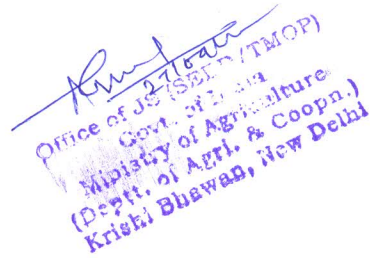 Office of JS (SEED/TMOP)
Govt. of India
Ministry of Agriculture
(Deptt. of Agri. & Coopn.)
Krishi Bhawan, New Delhi